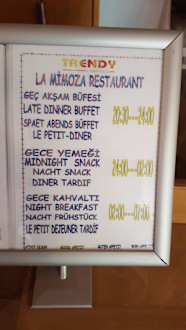 TRENDY
LA MİMOZA RESTAURANT
GEÇ AKŞAM BÜFESİ
LATE DINNER BUFFET
SPAET ABENDS BÜFFET
LE PETIT-DINER
GECE YEMEĞİ
MIDNIGHT SNACK
NACHT SNACK
DINER TARDIF
24:00---02:00
GECE KAHVALTI
NIGHT BREAKFAST
NACHT FRÜHSTÜCK
LE PETIT DEJEUNER TARDIF